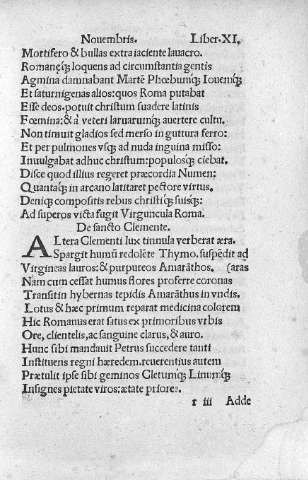 Nouembris. Liber.XI.
Mortifero & bullas extra iaciente lauacro.
Romanęq; loquens ad circumstantia gentis
Agmina damnabant Martē Phœbumq; Iouemq;
Et saturnigenas alios: quos Roma putabat
Esse deos. potuit christum suadere latinis
Fœmina: & a veteri laruarumq; auertere cultu.
Non timuit gladios sed merso in guttura ferro:
Et per pulmones vsq; ad nuda inguina misso:
Inuulgabat adhuc christum: populosq; ciebat.
Disce quod illius regeret præcordia Numen:
Quantaq; in arcano latitaret pectore virtus.
Deniq; compositis rebus christiq; suisq;:
Ad superos victa fugit Virguncula Roma.
De sancto Clemente.
ALtera Clementi lux tinnula verberat æra.
Spargit humū redolēre Thymo. suspēdit ad
Virgineas lauros: & purpureos Amarāthos. (aras
Nam cum cessat humus flores proferre coronas
Transit in hybernas tepidis Amarāthus in vndis.
Lotus & hæc primum reparat medicina colorem
Hic Romanus erat satus ex primoribus vrbis
Ore, clientelis, ac sanguine clarus, & auro.
Hunc sibi mandauit Petrus succedere tanti
Instituens regni hæredem. reuerentius autem
Prætulit ipse sibi geminos Cletumq; Linumq;
Insignes pietate viros: ætate priores.
r iii Adde